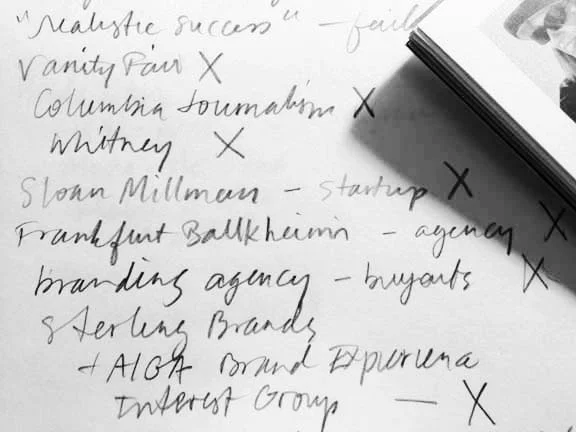 "realistic success" –
Vanity Fair X
Columbia Journalism X
Whitney X
Sloan Millman – startup X
Frankfurt Balkheimir – agency X
branding agency – buyouts X
Sterling Brands
+ AIGA Brand Experience
Interest Group — X